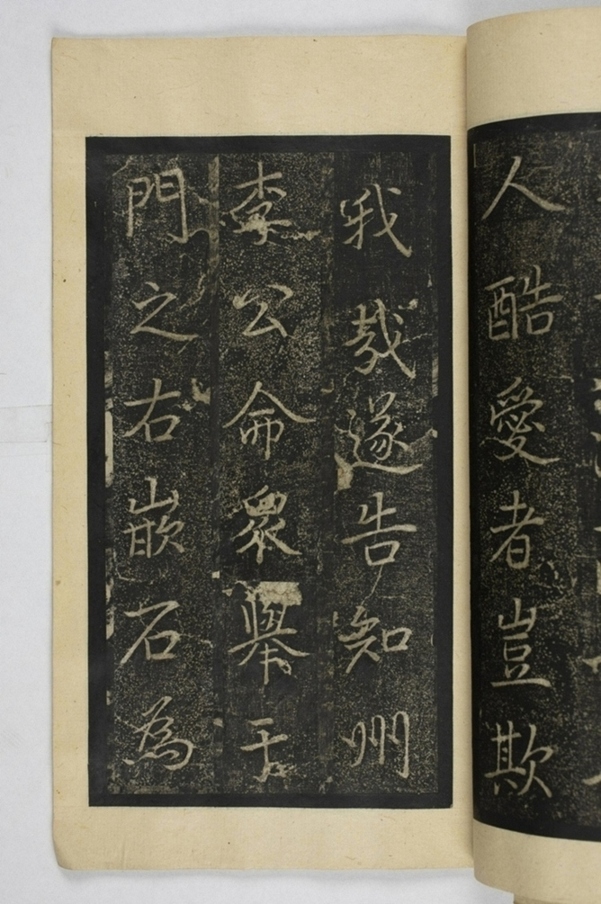 人酷愛者豈欺
我哉遂告知州
李公命眾舉于
門之右嵌石為